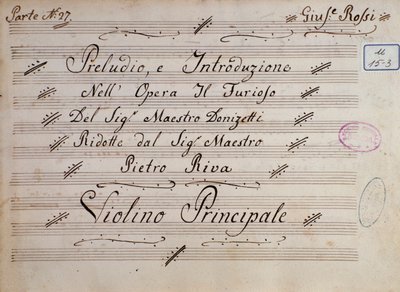 Parte N.º 27.
Gius.e Rossi
11
15-3
Preludio, e Introduzione
Nell' Opera Il Furioso
Del Sig.r Maestro Donizetti
Ridotte dal Sig.r Maestro
Pietro Riva
Violino Principale